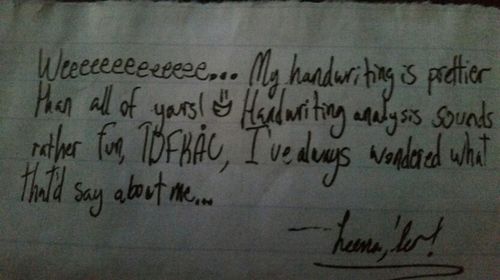 Weeeeeeeeeeeee... My handwriting is prettier
than all of yours! Handwriting analysis sounds
rather fun, IDFKAC, I've always wondered what
that'd say about me...